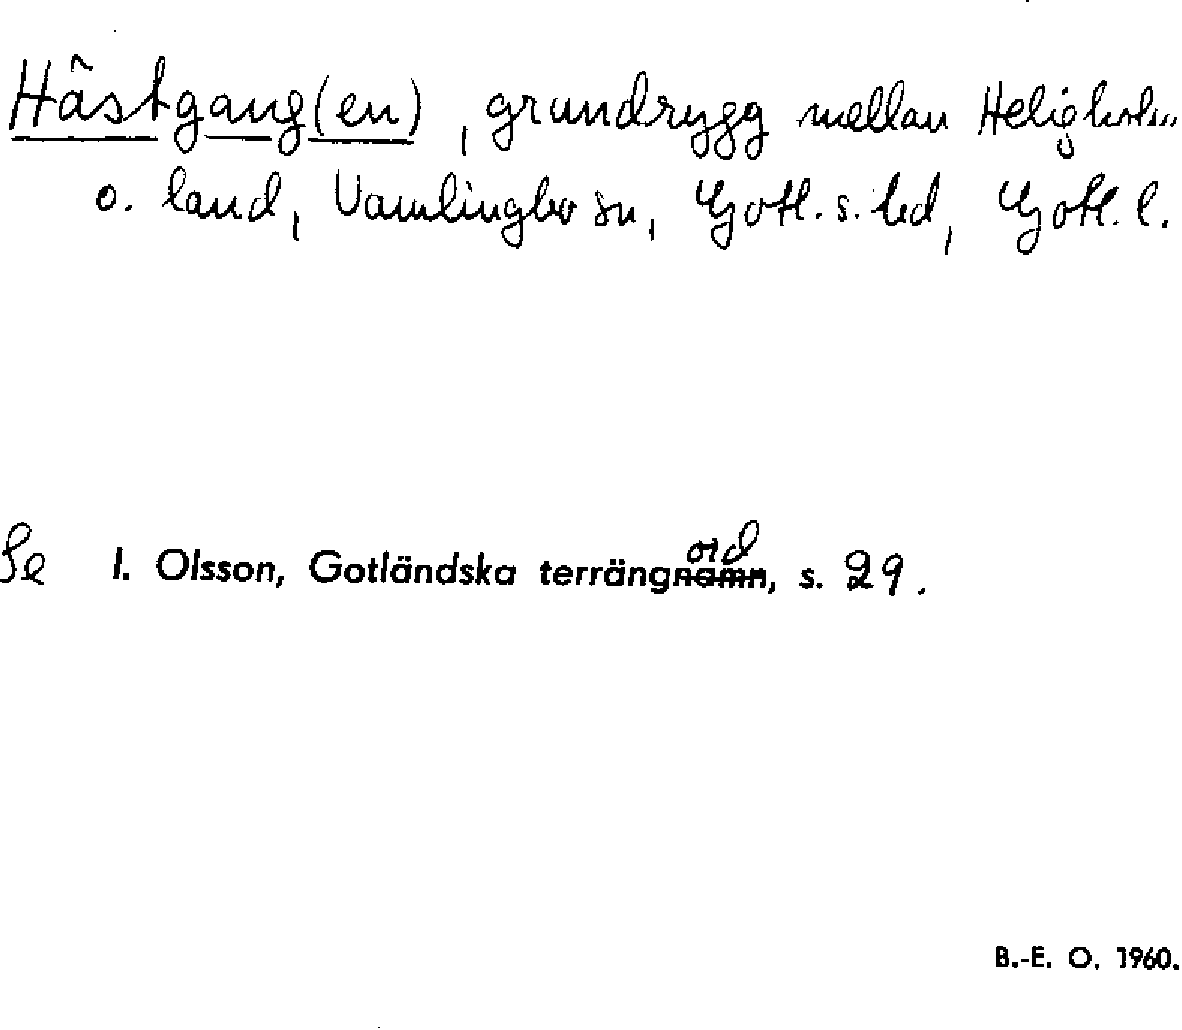 Hästgang(en), grundrygg mellan Heligholm
o. land, Vamlingbo sn, Gotl. s. hd, Gotl. l.
Se I. Olsson, Gotländska terrängnamnord, s. 29.
B.-E. O. 1960.